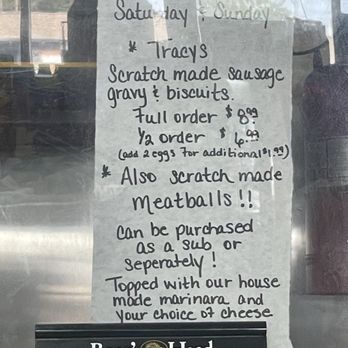 Saturday & Sunday
* Tracys
Scratch made sausage
gravy & biscuits.
Full order $8.99
1/2 order $6.99
(add 2 eggs for additional $1.99)
* Also scratch made
Meatballs!!
Can be purchased
as a sub or
seperately!
Topped with our house
made marinara and
your choice of cheese